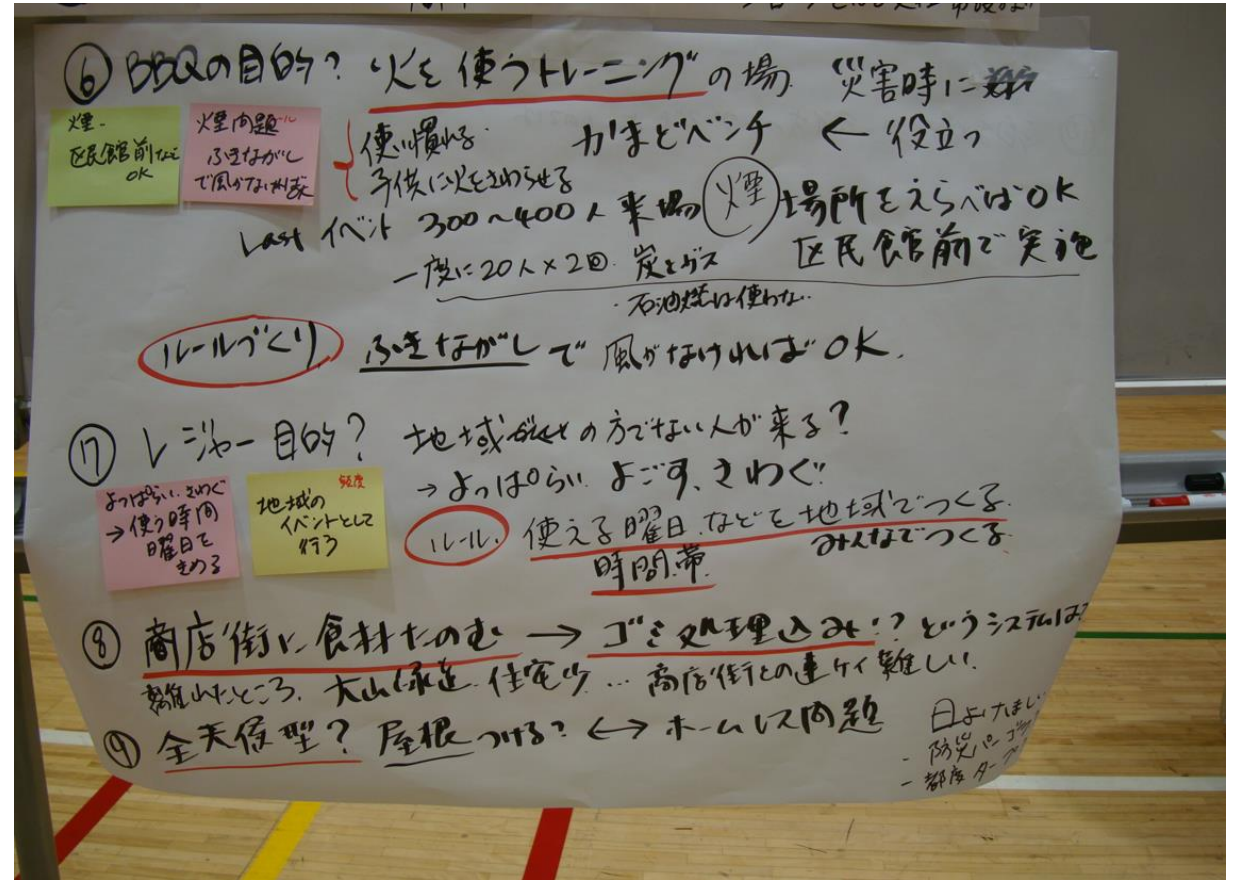 ⑥ BBQの目的? 火を使うトレーニングの場 災害時に
煙
区民館前なら
OK
煙問題
ふきながし
で風がなければ
使い慣れる
子供に火をさわらせる
かまどベンチ ← 役立つ
Last イベント 300〜400人来場
煙 場所をえらべばOK
区民館前で実施
一度に20人×2回. 炭とガス
・石油燃は使わない
ルールづくり ふきながしで風がなければOK.
⑦ レジャー目的? 地域の方でない人が来る?
よっぱらい. さわぐ
→使う時間
曜日を
きめる
頻度
地域の
イベントとして
行う
→よっぱらい よごす、さわぐ
ルール. 使える曜日.などを地域でつくる.
時間帯 みんなでつくる
⑧ 商店街に食材たのむ → ゴミ処理込み!? というシステムは?
離れたところ. 大山緑道 住宅 … 商店街との連ケイ難しい.
⑨ 全天候型? 屋根つける? ←→ ホームレス問題
日よけほしい
- 防災パーゴラ
- 都度タープ